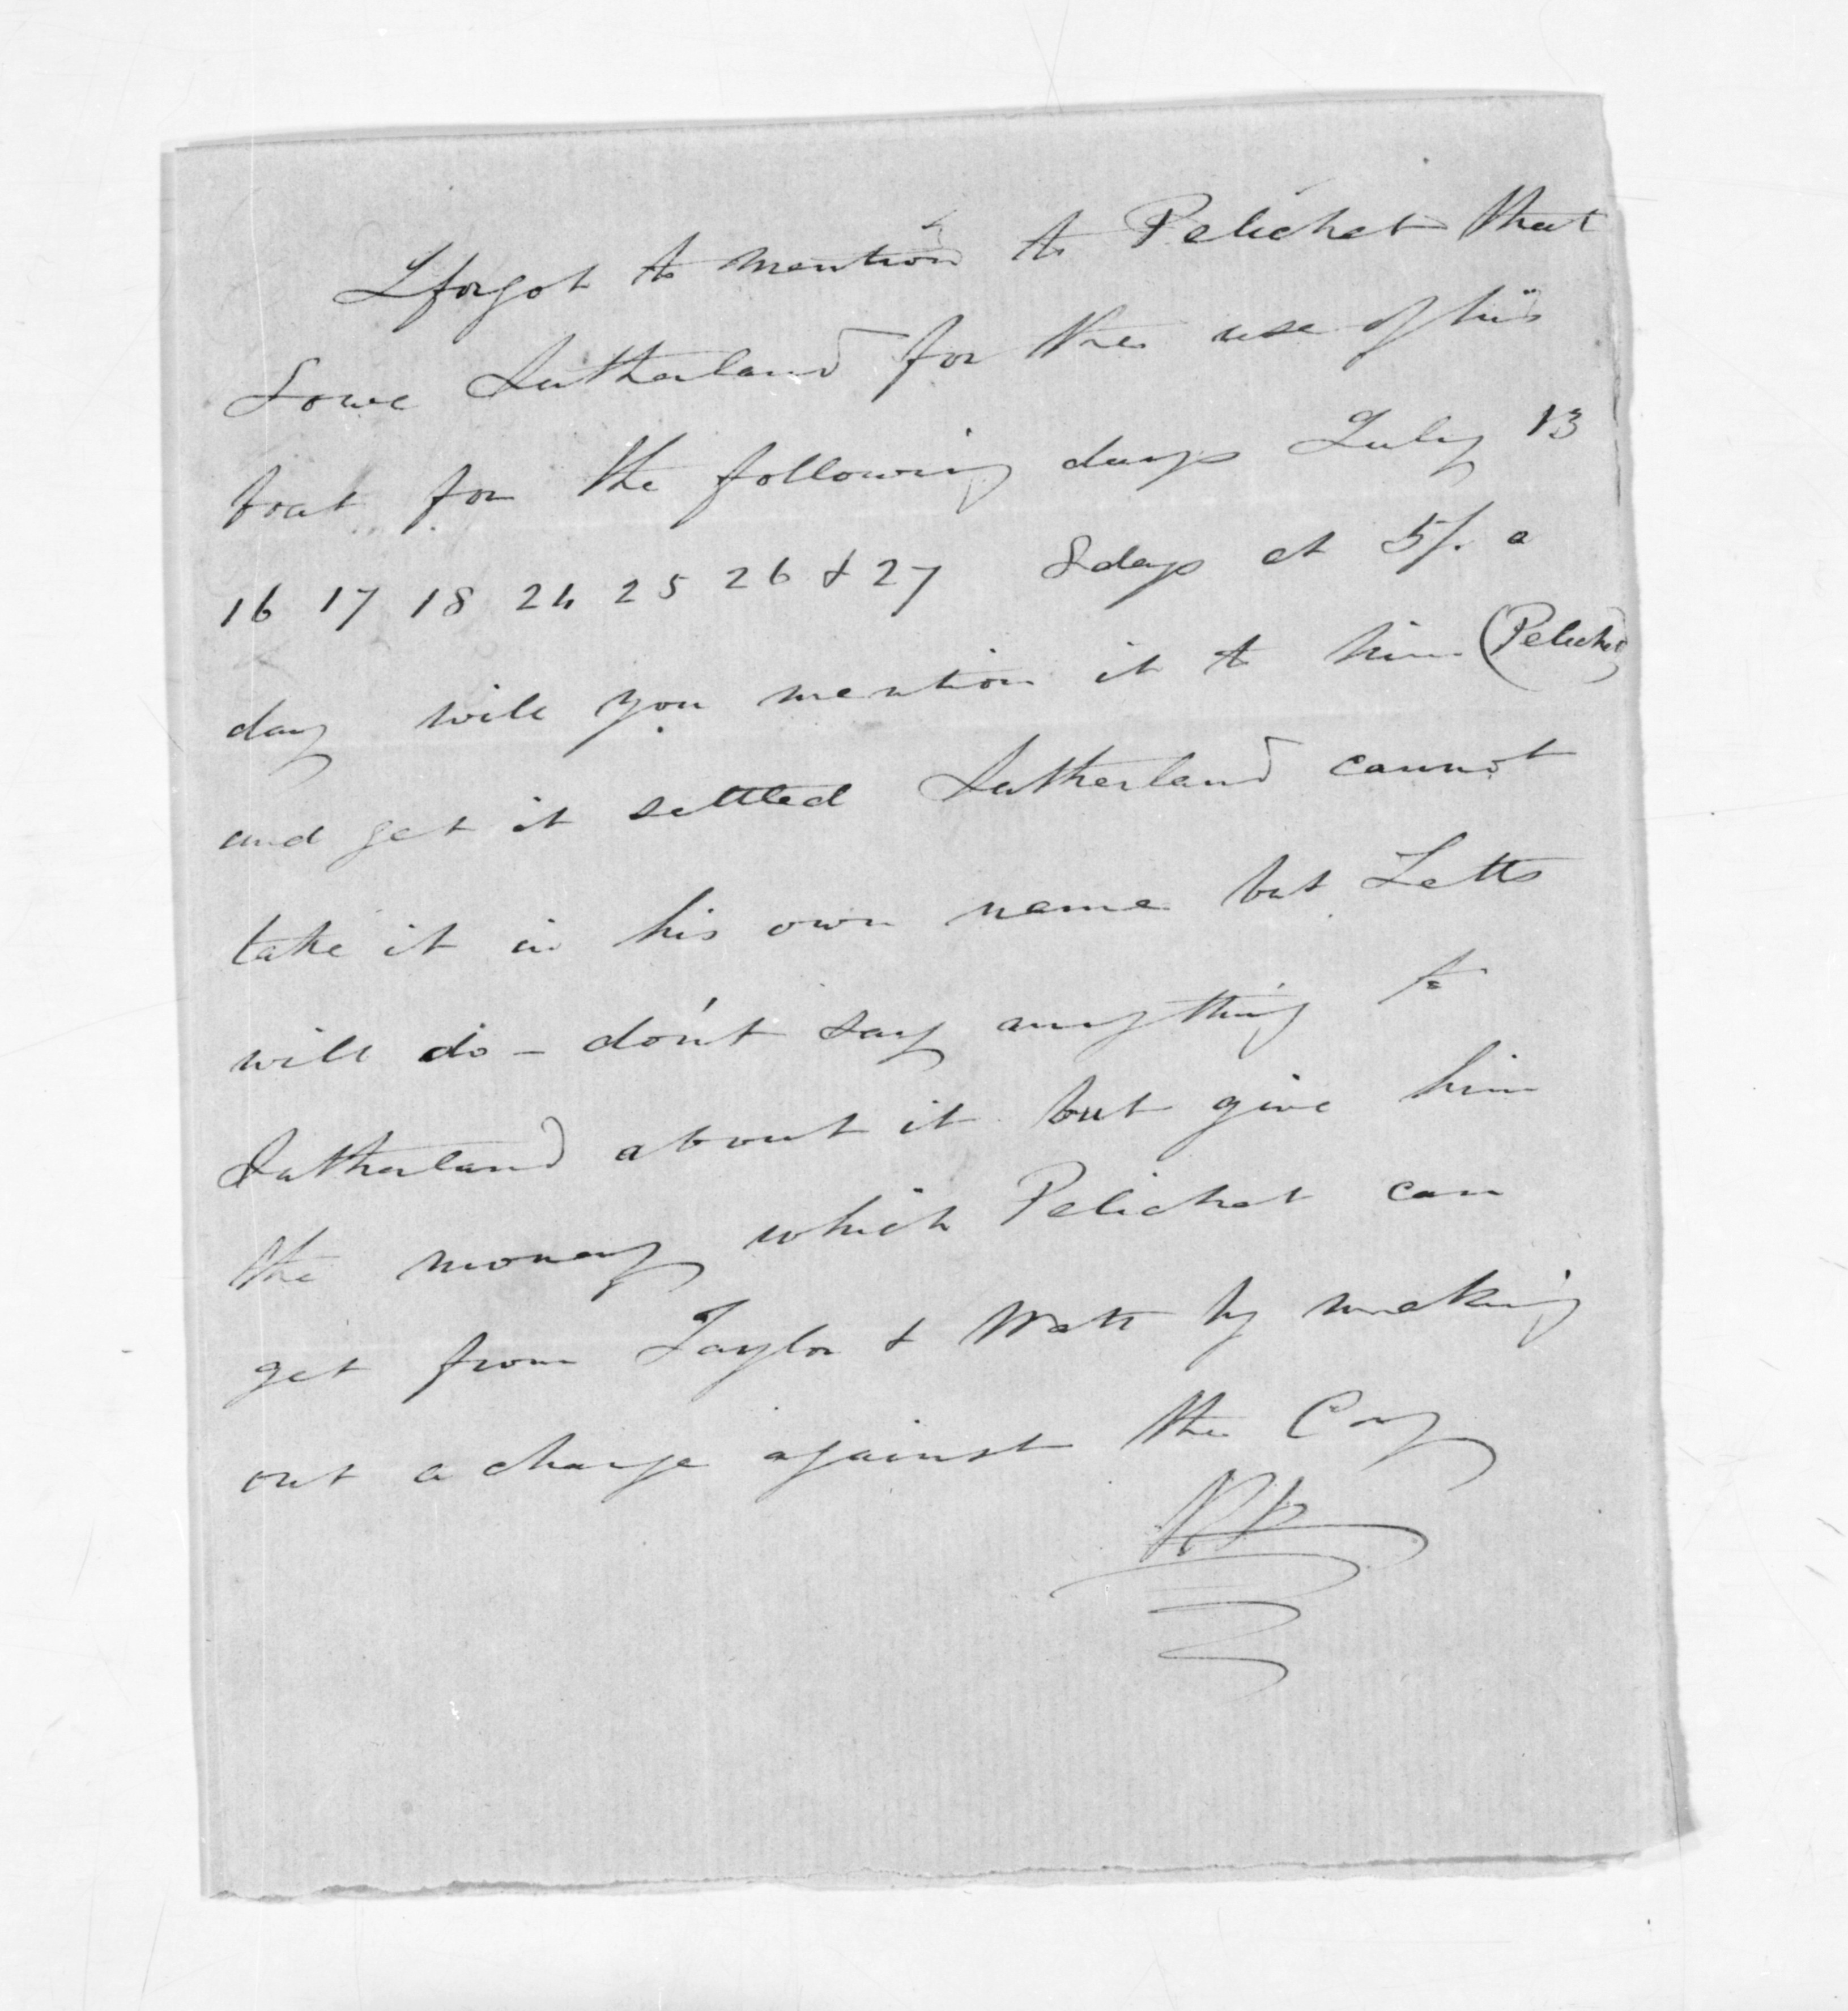 I forgot to mention to Pelichet that
I owe Sutherland for the use of his
boat for the following days July 13
16 17 18 24 25 26 & 27 8 days at 5/. a
day will you mention it to him (Pelichet)
and get it settled Sutherland cannot
take it in his own name but Letts
will do - don't say anything to
Sutherland about it but give him
the money which Pelichet can
get from Taylor & Watt by making
out a charge against the Coy
RP